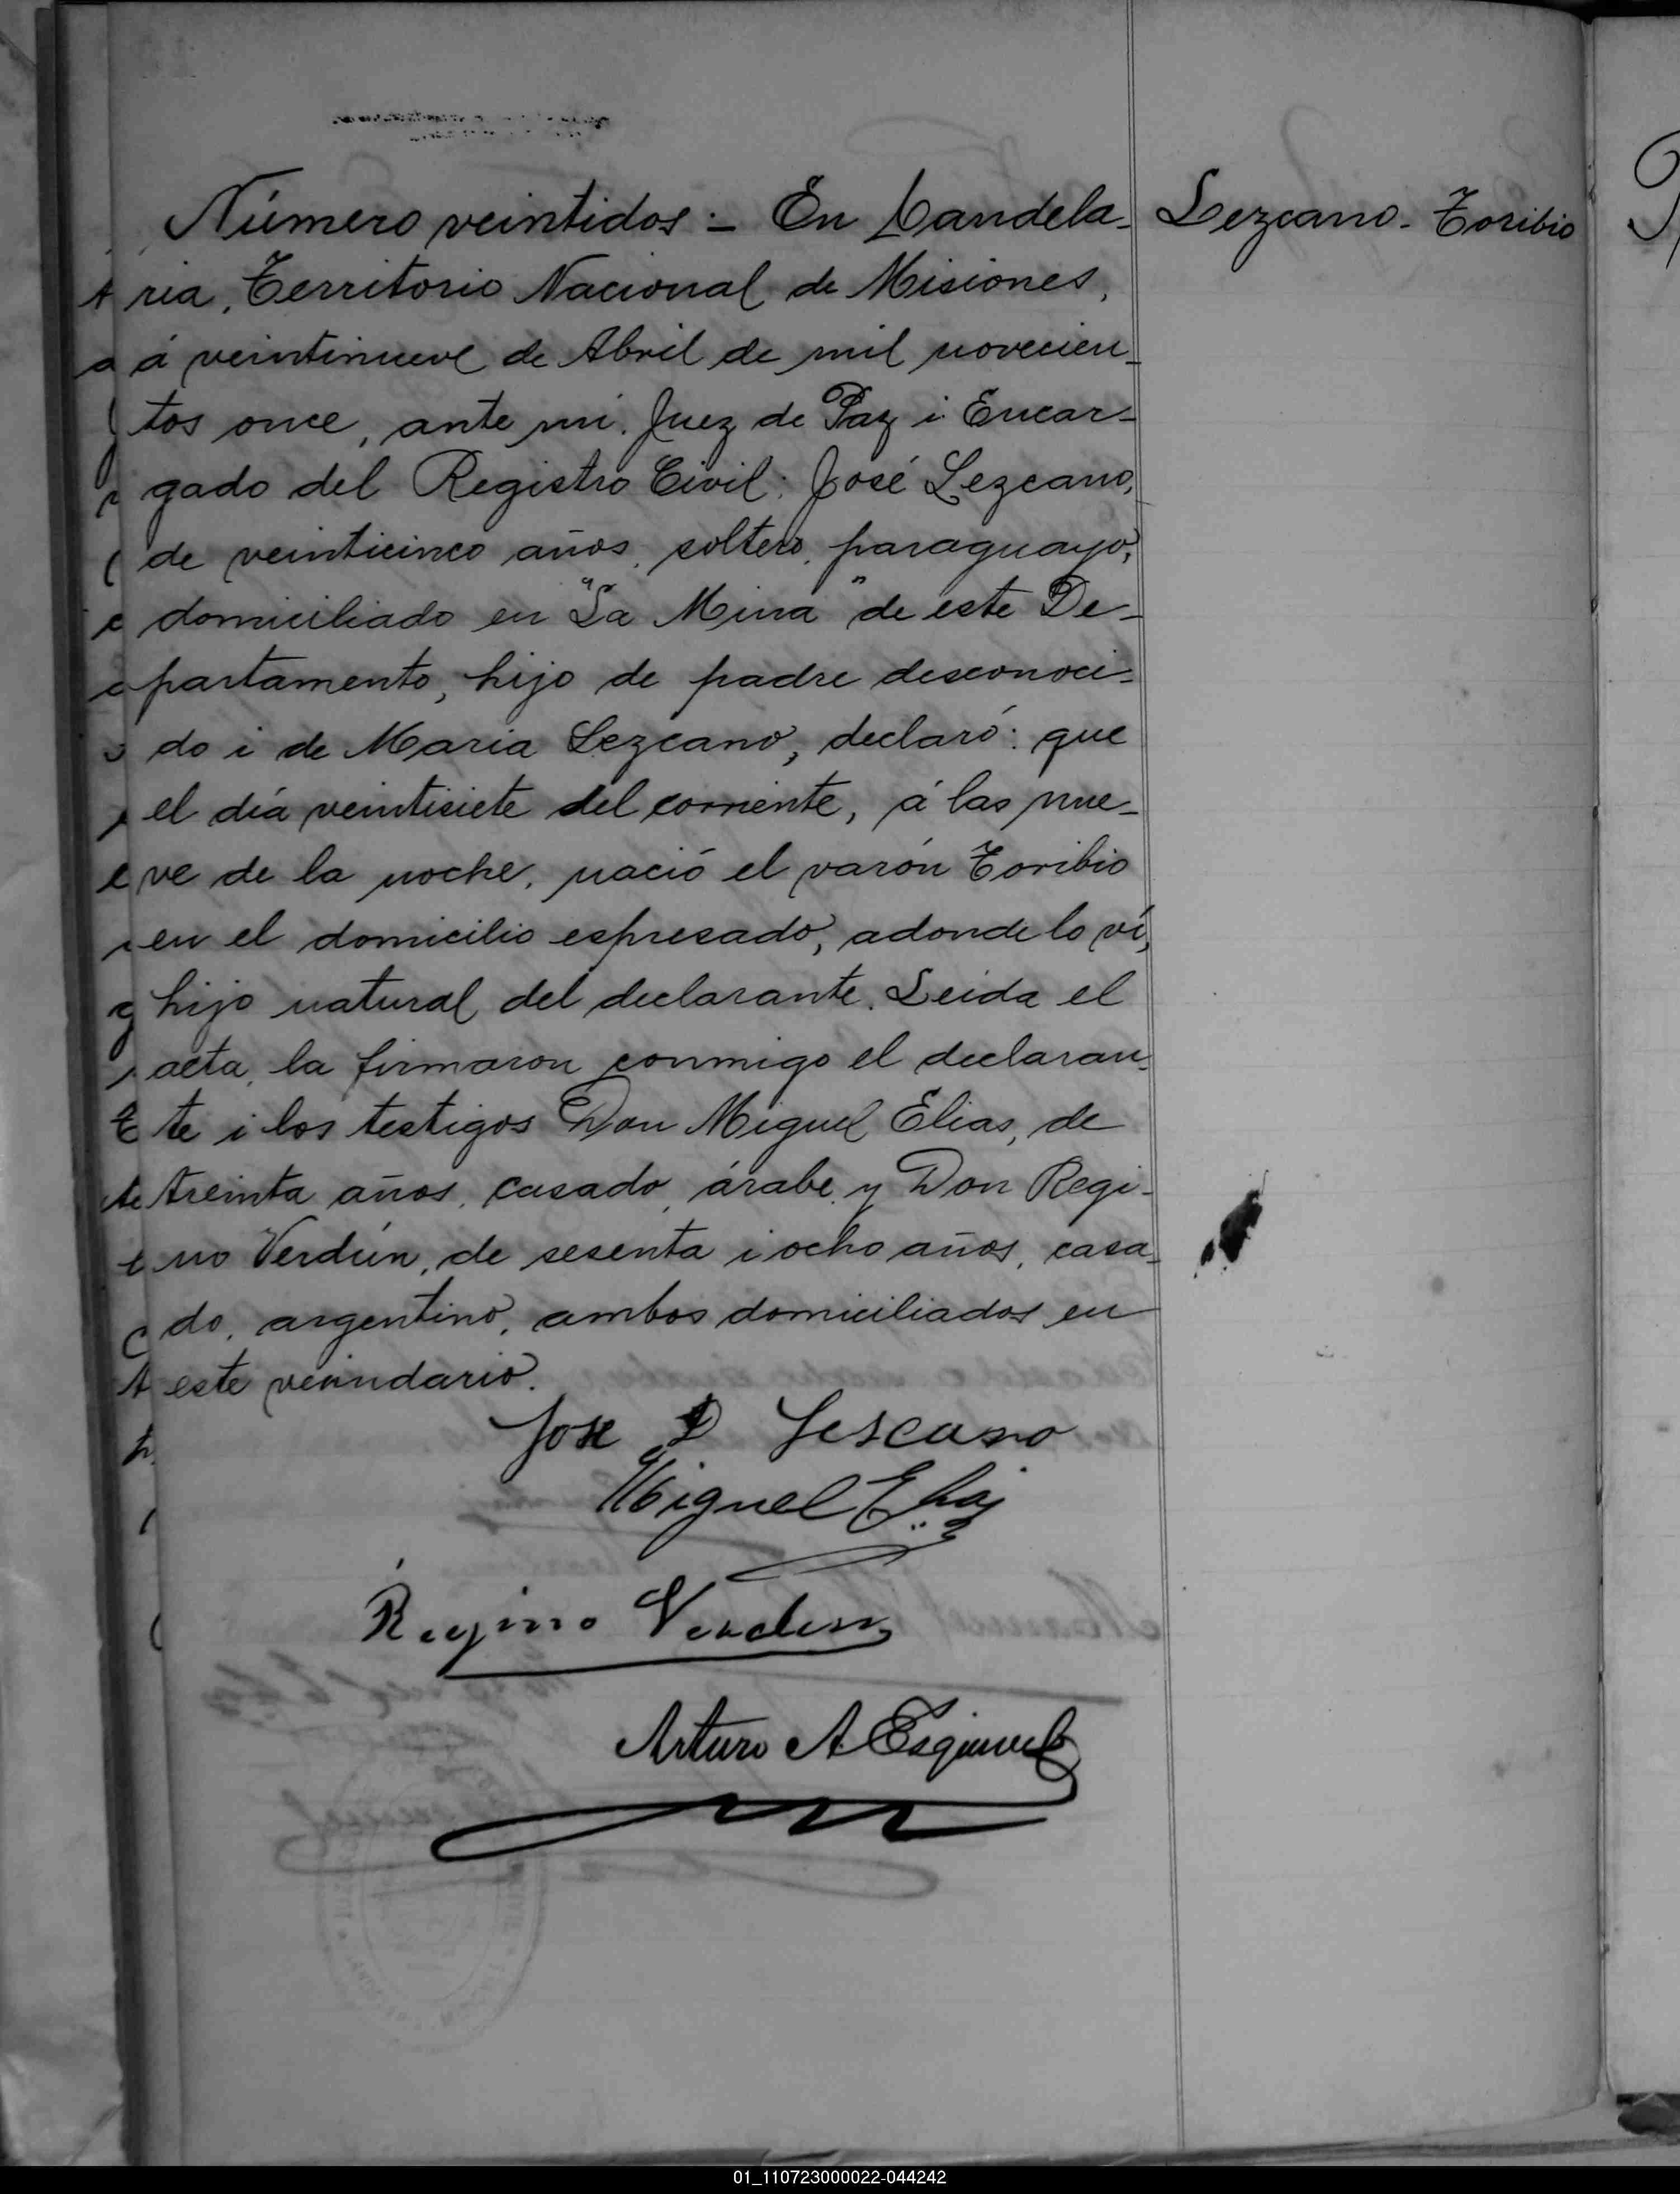 Número veintidos:- En Candela- Lezcano- Toribio
ria, Territorio Nacional de Misiones,
á veintinueve de Abril de mil novecien-
tos once, ante mi. Juez de Paz i Encar-
gado del Registro Civil: José Lezcano,
de veinticinco años, soltero, paraguayo,
domiciliado en "La Mina" de este De-
partamento, hijo de padre desconoci-
do i de Maria Lezcano, declaró: que
el día veintisiete del corriente, á las nue-
ve de la noche, nació el varón Toribio
en el domicilio espresado, adonde lo ví,
hijo natural del declarante. Leida el
acta, la firmaron conmigo el declaran-
te i los testigos Don Miguel Elias, de
treinta años, casado, árabe y Don Regi-
no Verdún, de sesenta i ocho años, casa-
do, argentino, ambos domiciliados en
este vecindario.
Jose D Lescano
Miguel Elias
Regino Verdun
Arturo A. Esquivel
01_110723000022-044242